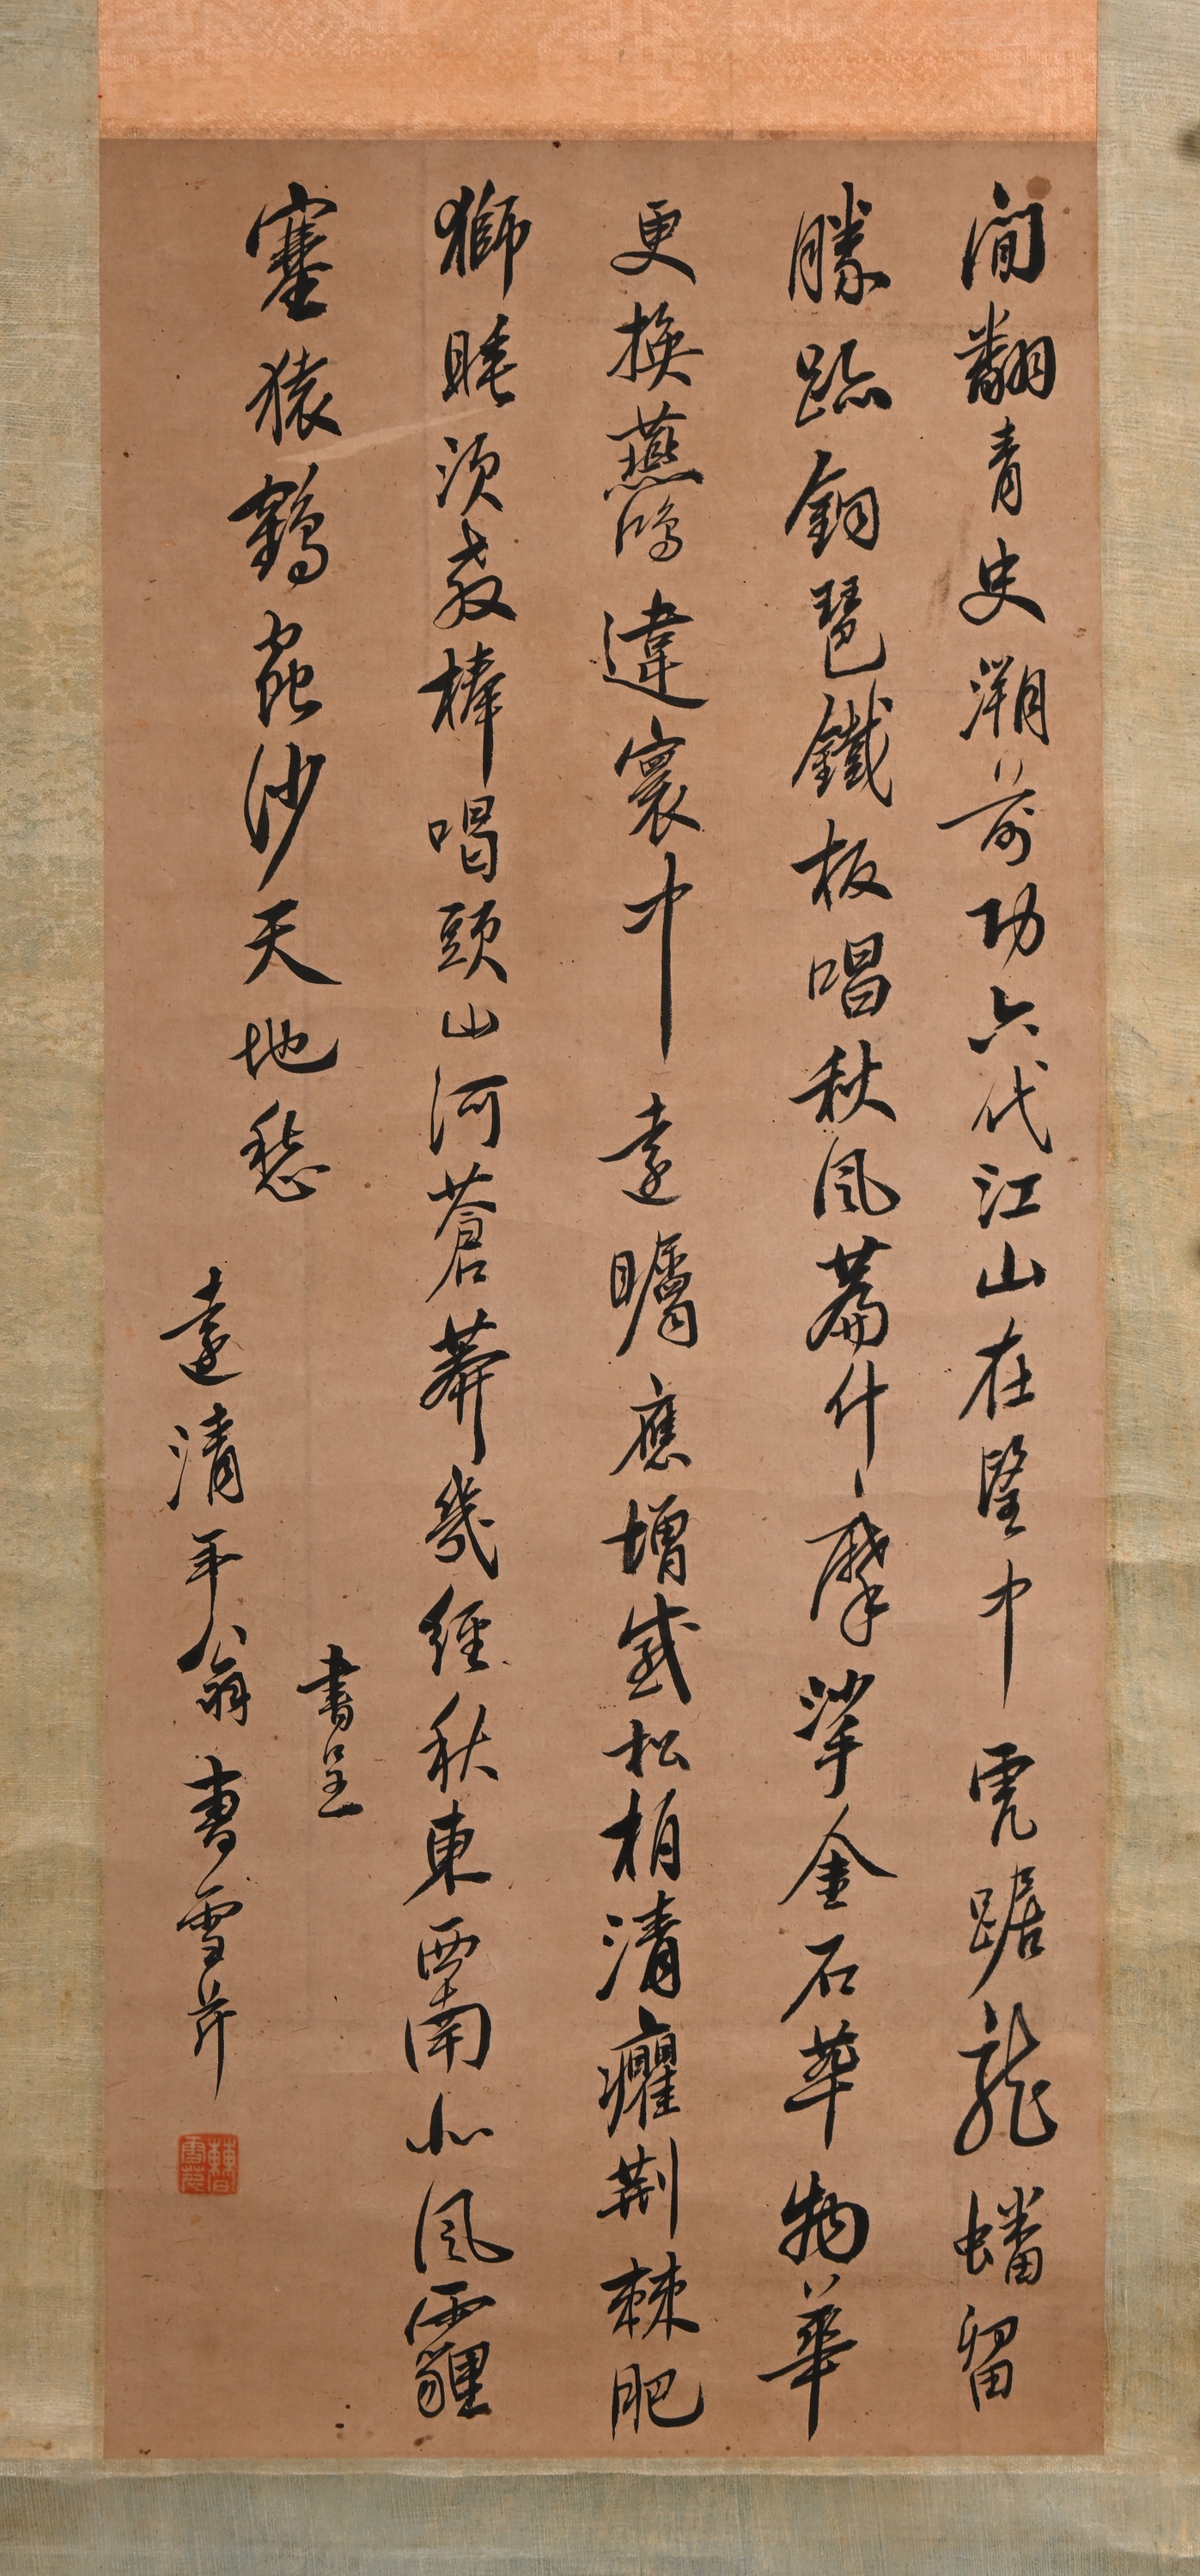 閒翻青史溯前功六代江山在望中虎踞龍蟠留
勝跡銅琶鐵板唱秋風篇什摩挲金石華物華
更換燕鴻違寰中遠矚應增感松柏清癯荊棘肥
獅睡須教棒喝頭山河蒼莽幾經秋東西南北風霾
塞猿鶴蟲沙天地愁
書呈
遠清年翁 曹雪芹